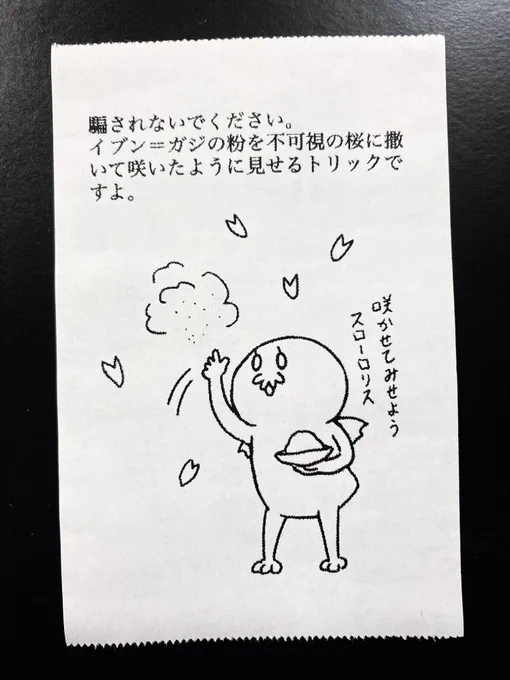 騙されないでください。
イブン＝ガジの粉を不可視の桜に撒
いて咲いたように見せるトリックで
すよ。
咲かせてみせよう
スローロリス